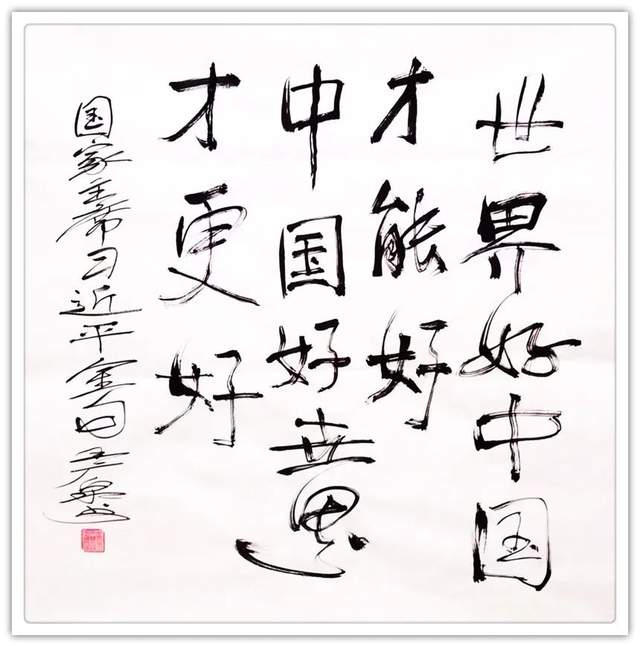 世界好中国
才能好
中国好世界
才更好
国家主席习近平金句